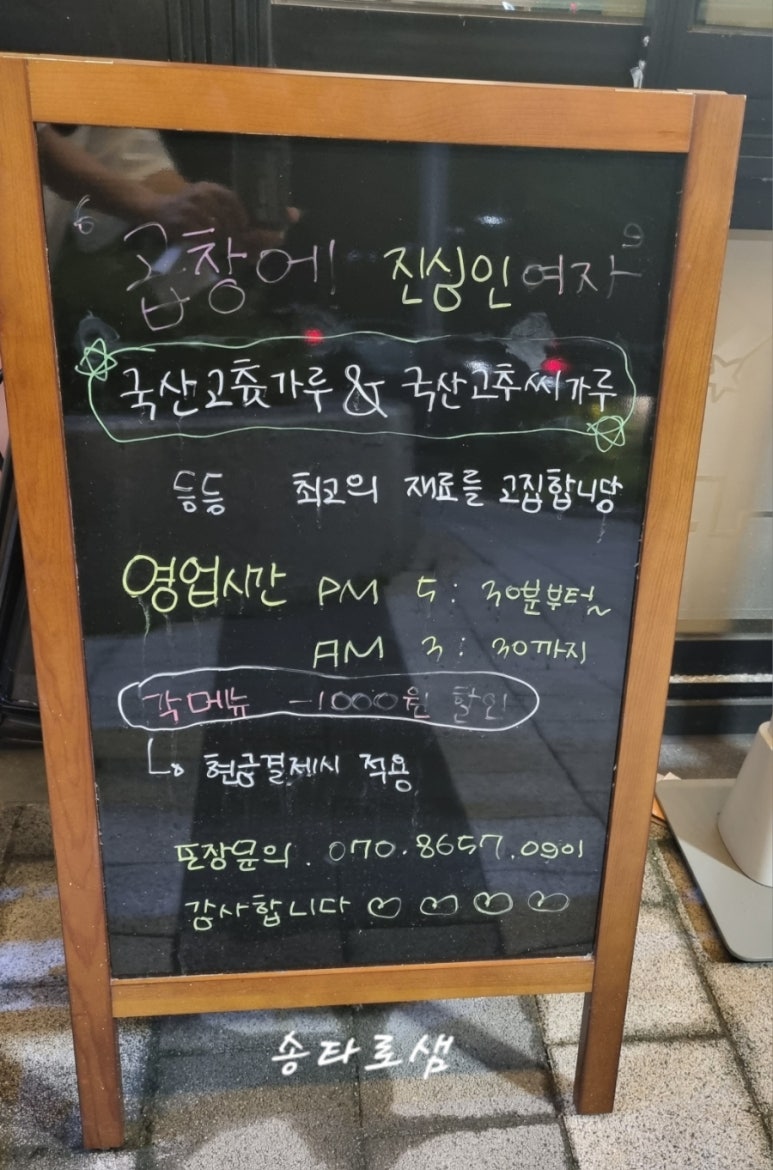 “ 곱창에 진심인 여자 ”
국산고춧가루 & 국산고추씨가루
등등 최고의 재료를 고집합니당
영업시간 PM 5 : 30분부터~
AM 3 : 30까지
각메뉴 -1000원 할인
현금결제시 적용
포장문의 . 070.8657.0901
감사합니다 ♡ ♡ ♡ ♡
송타로샘